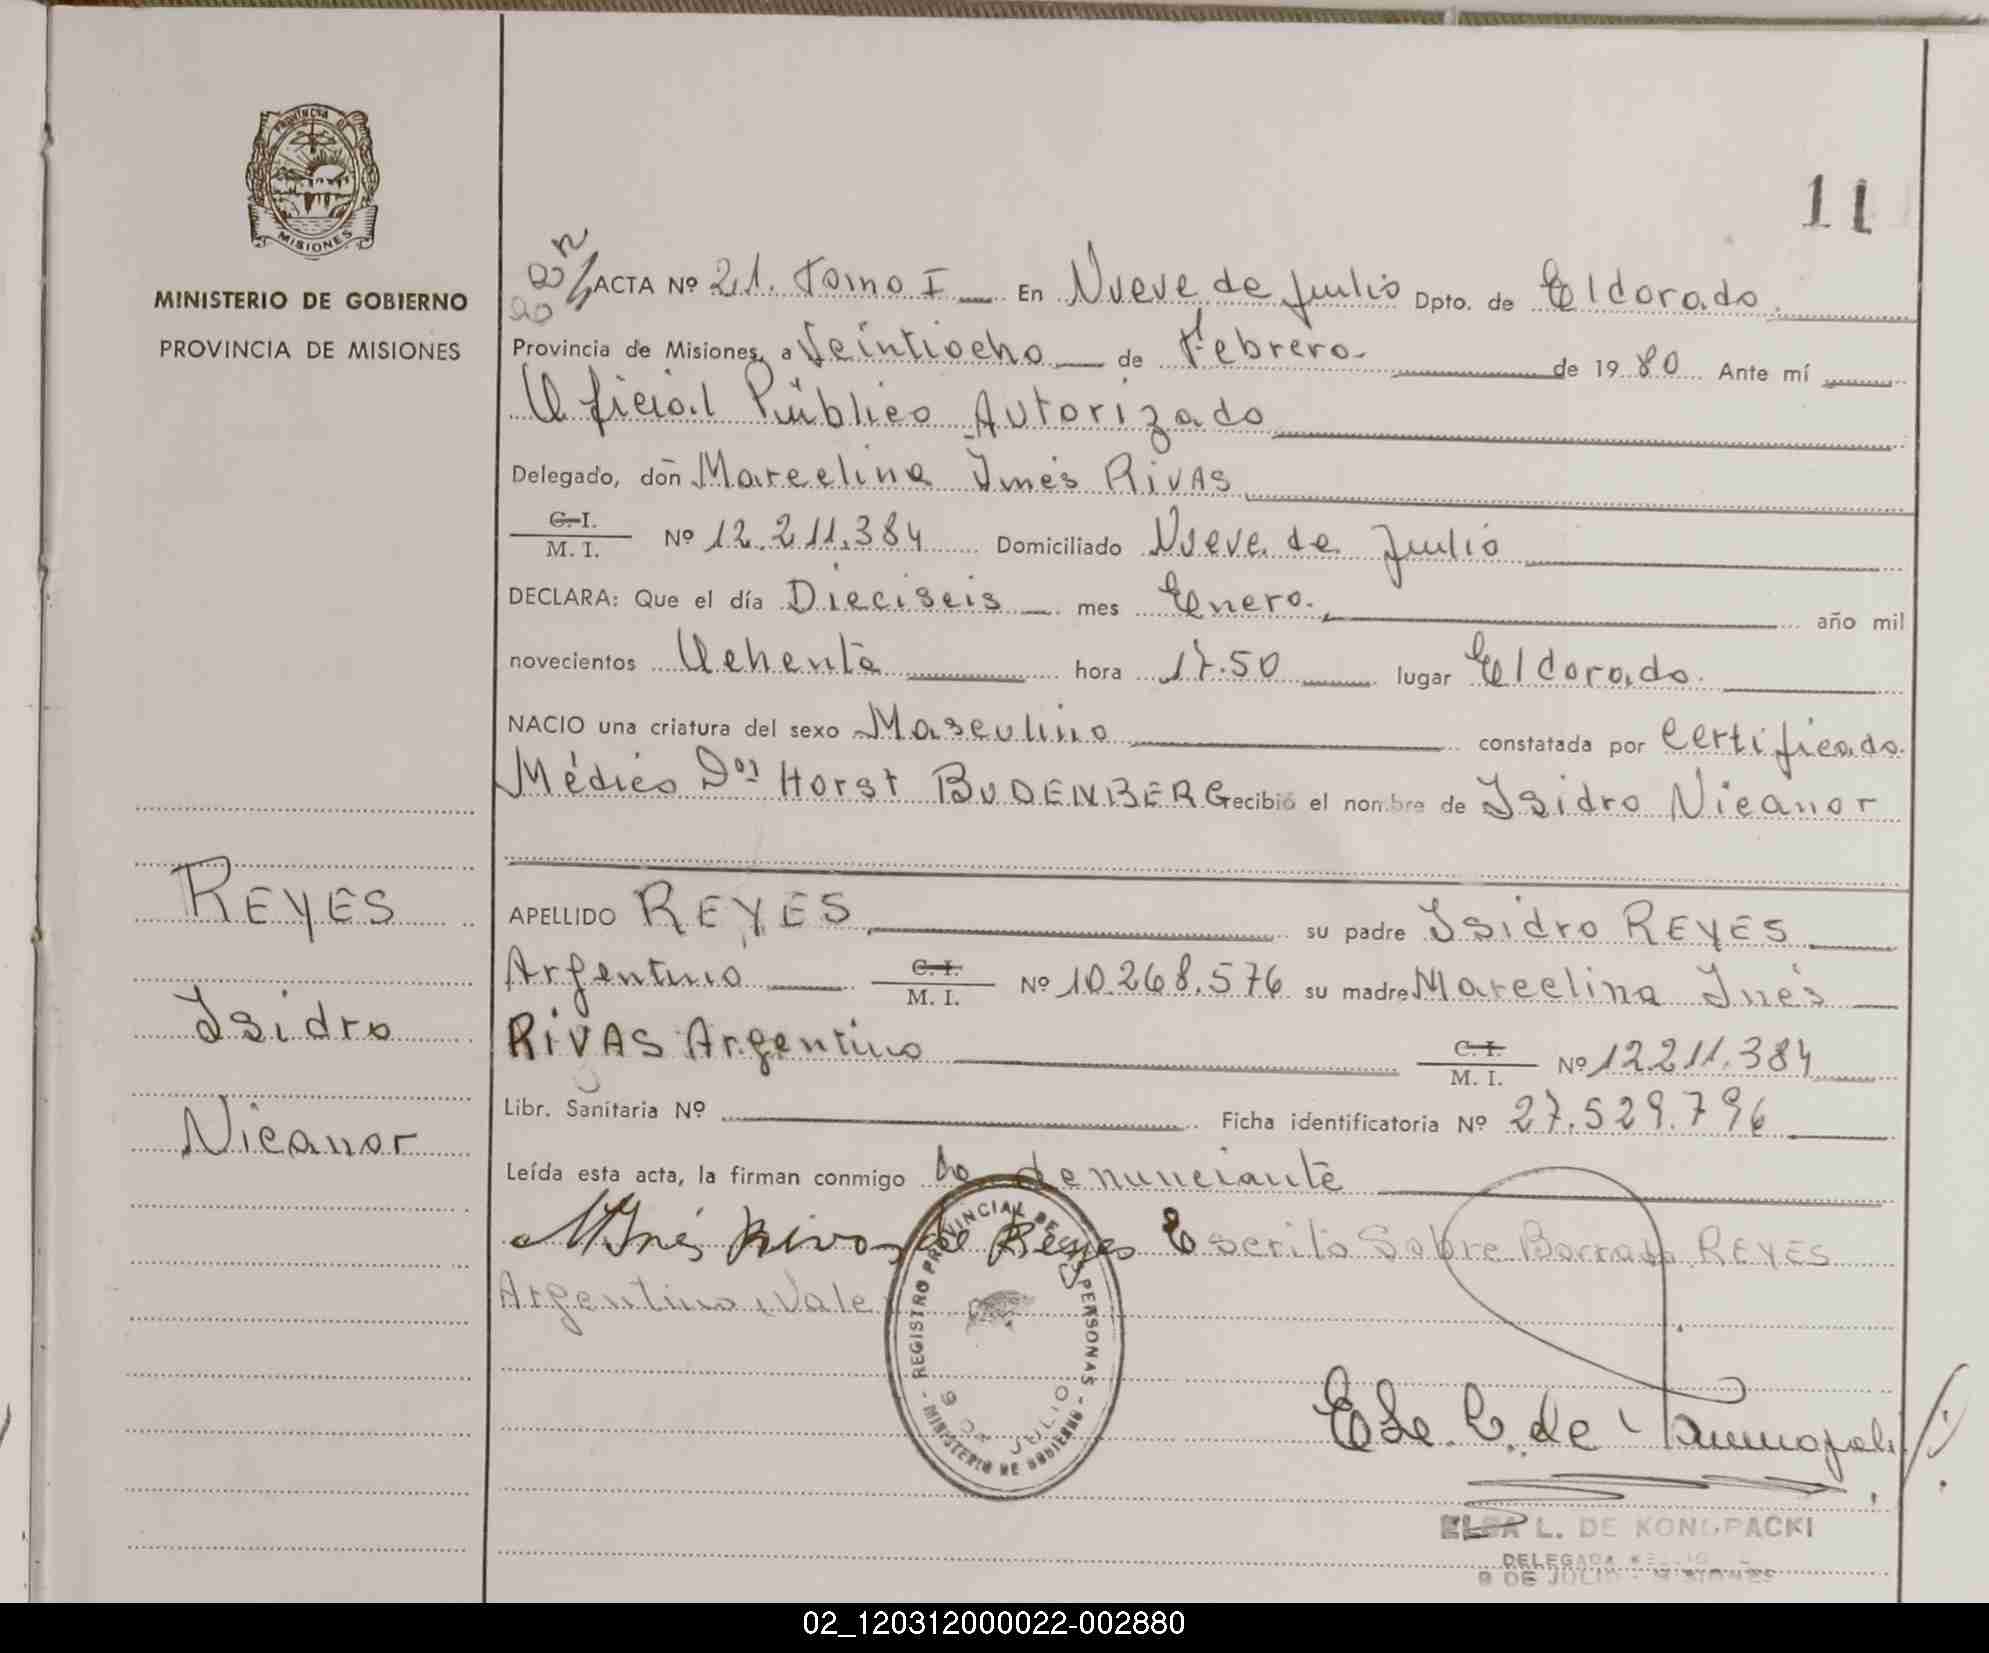 PROVINCIA DE
MISIONES
MINISTERIO DE GOBIERNO
PROVINCIA DE MISIONES
REYES
Isidro
Nicanor
11
ACTA Nº 21. Tomo I En Nueve de Julio Dpto. de Eldorado.
Provincia de Misiones, a Veintiocho de Febrero. de 1980 Ante mí
Oficial Público Autorizado
Delegado, don Marcelina Inés RIVAS
C.I.
M. I. Nº 12.211.384 Domiciliado Nueve de Julio
DECLARA: Que el día Dieciseis mes Enero. año mil
novecientos Ochenta hora 17.50 lugar Eldorado.
NACIO una criatura del sexo Masculino constatada por Certificado
Médico Dor Horst BUDENBERG recibió el nombre de Isidro Nicanor
APELLIDO REYES su padre Isidro REYES
Argentino C. I. M. I. Nº 10.268.576 su madre Marcelina Inés
RIVAS Argentino C. I. M. I. Nº 12.211.384
Libr. Sanitaria Nº Ficha identificatoria Nº 27.529.796
Leída esta acta, la firman conmigo la denunciante
M Inés Rivas de Reyes Escrito Sobre Borrado REYES
Argentino, Vale
REGISTRO PROVINCIAL DE LAS PERSONAS
9 DE JULIO
MINISTERIO DE GOBIERNO
ELSA L. DE KONOPACKI
DELEGADA
9 DE JULIO - MISIONES
02_120312000022-002880